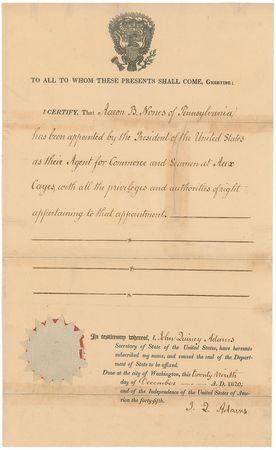 TO ALL TO WHOM THESE PRESENTS SHALL COME, GREETING:
I CERTIFY, That Aaron B. Nones of Pennsylvania
has been appointed by the President of the United States
as their Agent for Commerce and Seamen at Aux
Cayes, with all the privileges and authorities of right
appertaining to that appointment.
In testimony whereof, I, John Quincy Adams
Secretary of State of the United States, have hereunto
subscribed my name, and caused the seal of the Depart-
ment of State to be affixed.
Done at the city of Washington, this twenty Ninth
day of December A. D. 1820;
and of the Independence of the United States of Ame-
rica the forty-fifth.
J. Q. Adams